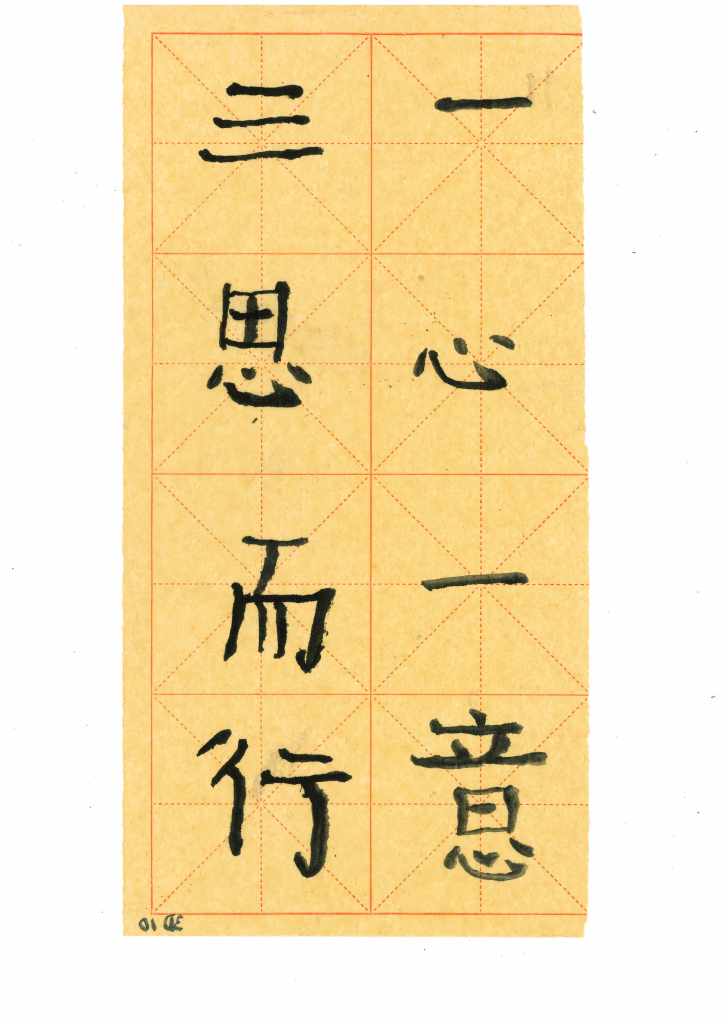 一心一意
三思而行